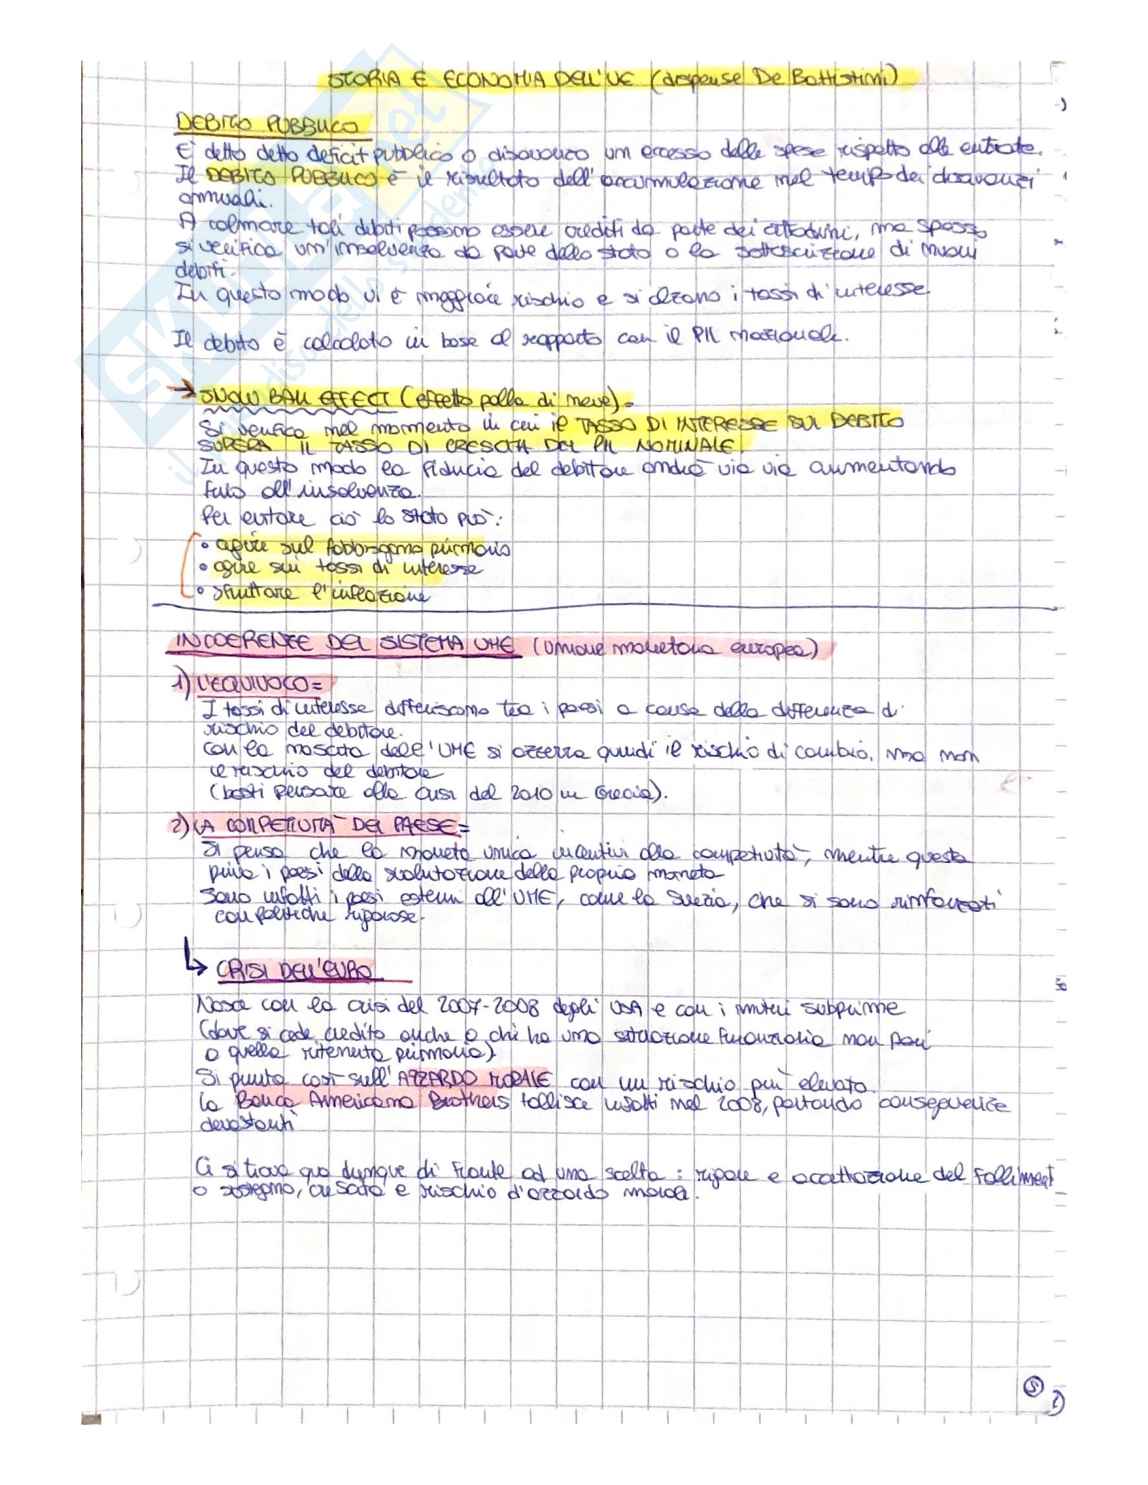 STORIA E ECONOMIA DELL'UE (dispense De Battistini)
DEBITO PUBBLICO
E' detto detto deficit pubblico o disavanzo un eccesso delle spese rispetto alle entrate.
Il DEBITO PUBBLICO è il risultato dell'accumulazione nel tempo dei disavanzi
annuali.
A colmare tali debiti possono essere crediti da parte dei cittadini, ma spesso
si verifica un'insolvenza da parte dello stato o la sottoscrizione di nuovi
debiti.
In questo modo vi è maggiore rischio e si alzano i tassi di interesse.
Il debito è calcolato in base al rapporto con il PIL nazionale.
→ SNOW BALL EFFECT (effetto palla di neve) =
Si verifica nel momento in cui il TASSO DI INTERESSE SUL DEBITO
SUPERA IL TASSO DI CRESCITA DEL PIL NOMINALE.
In questo modo la fiducia del debitore andrà via via aumentando
fino all'insolvenza.
Per evitare ciò lo stato può:
• agire sul fabbisogno primario
• agire sui tassi di interesse
• sfruttare l'inflazione
INCOERENZE DEL SISTEMA UME (Unione monetaria europea)
1) L'EQUIVOCO =
I tassi di interesse differiscono tra i paesi a causa della differenza di
rischio del debitore.
Con la nascita dell'UME si azzera quindi il rischio di cambio, ma non
il rischio del debitore
(basti pensare alla crisi del 2010 in Grecia).
2) LA COMPETITIVITÀ DEL PAESE =
Si pensa che la moneta unica incentivi alla competitività, mentre questa
priva i paesi della svalutazione della propria moneta
Sono infatti i paesi esterni all'UME, come la Svezia, che si sono rinforzati
con politiche rigorose.
↳ CRISI DELL'EURO
Nasce con la crisi del 2007-2008 degli USA e con i mutui subprime
(dove si cede credito anche a chi ha una situazione finanziaria non pari
a quella ritenuta primaria)
Si punta così sull'AZZARDO MORALE con un rischio più elevato.
La Banca Americana Brothers fallisce infatti nel 2008, portando conseguenze
devastanti
Ci si trova qua dunque di fronte ad una scelta: rigore e accettazione del falliment
o sostegno, crescita e rischio d'azzardo morale.
5